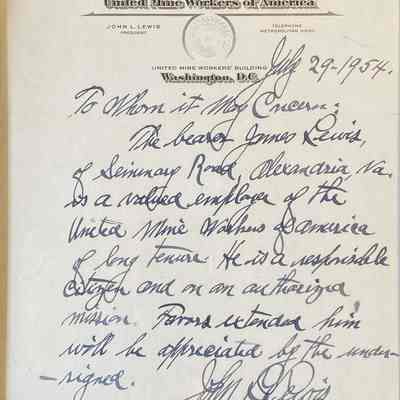 United Mine Workers of America
JOHN L. LEWIS
PRESIDENT
TELEPHONE
METROPOLITAN
UNITED MINE WORKERS' BUILDING
Washington, D.C.
July 29-1954.
To Whom it May Concern:
The bearer James Lewis,
of Seminary Road, Alexandria, Va.
is a valued employee of the
United Mine Workers of America
of long tenure. He is a responsible
citizen and on an authorized
mission. Favors extended him
will be appreciated by the under-
-signed.
John L Lewis